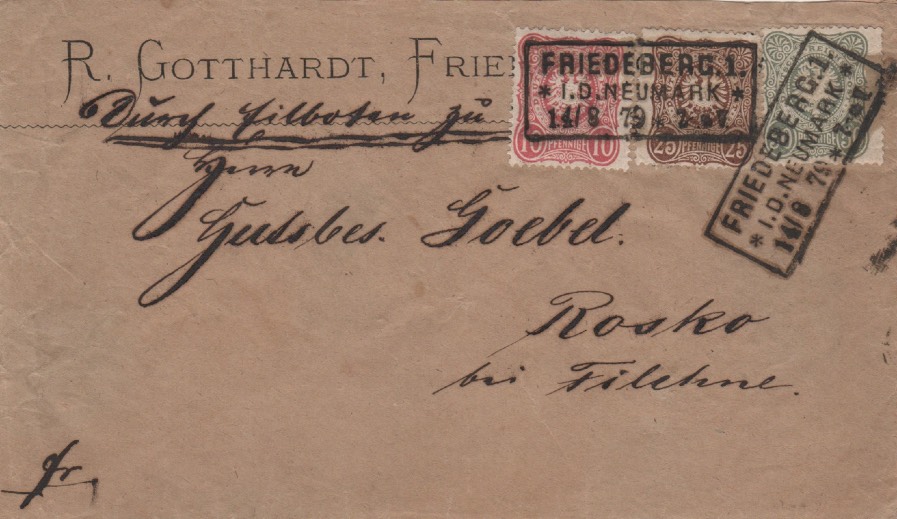 R. GOTTHARDT, FRIE
Durch Eilboten zu
Herrn
Gutsbes. Goebel.
Rosko
bei Filehne.
fr.
FRIEDEBERG.1.
* I.D.NEUMARK *
14/8 79
10 PFENNIGE 10
25 PFENNIGE 25
REICH
FRIEDEBERG.1.
* I.D.NEUMARK *
14/8 79